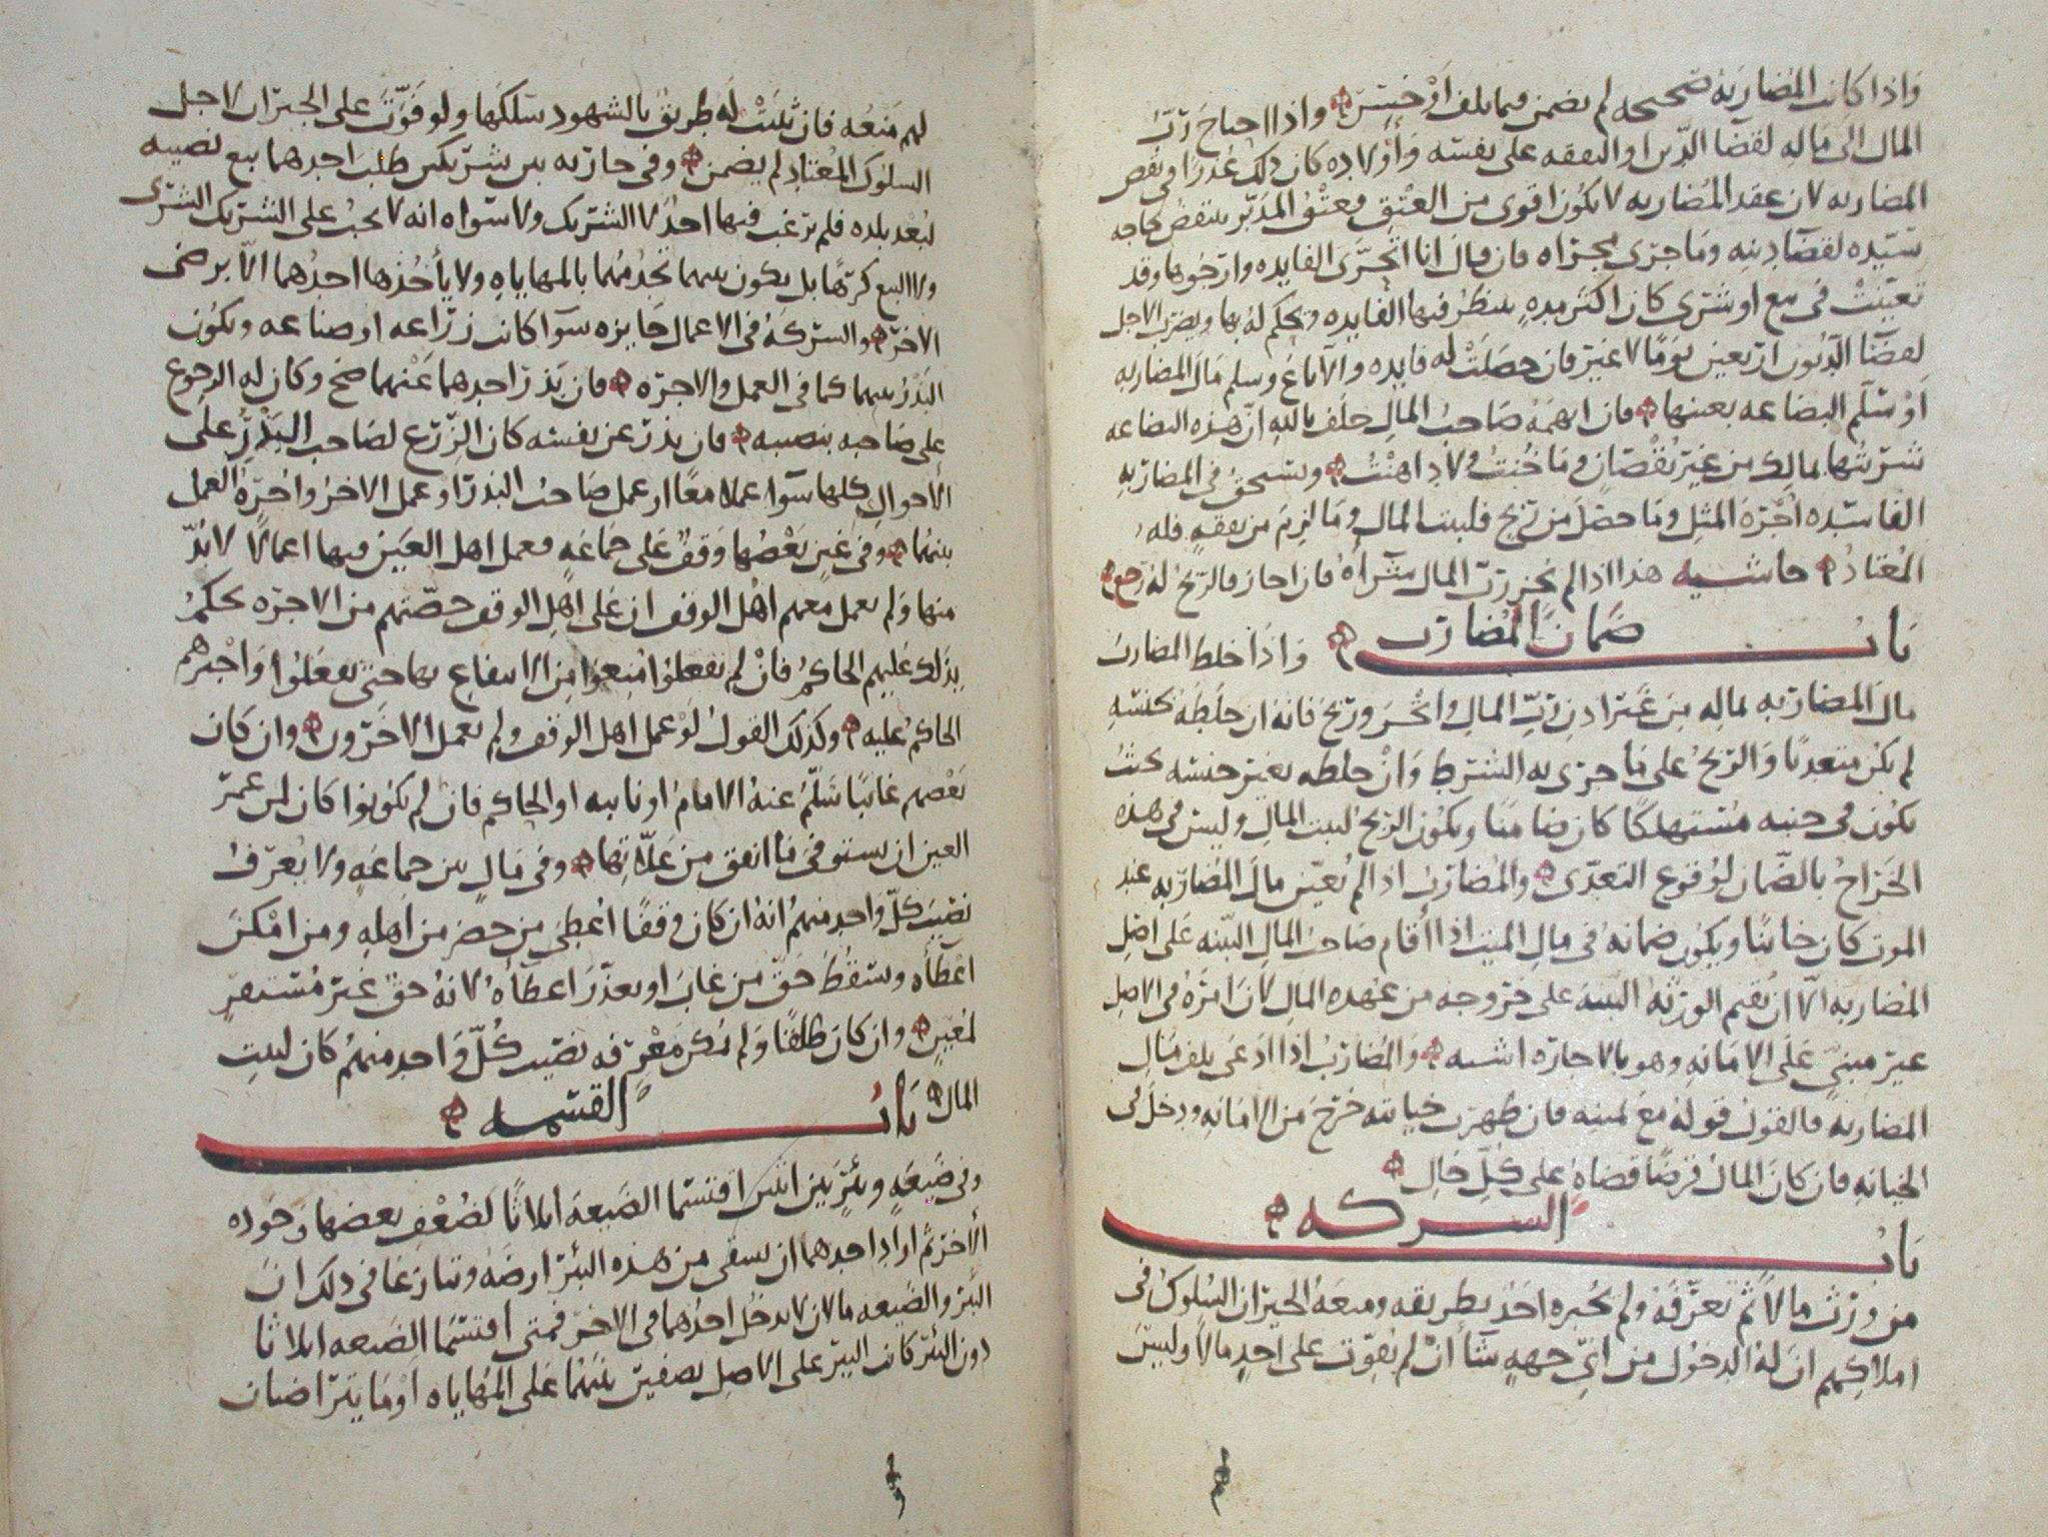 واذا كانت المضاربه صحيحه لم يضمن فيما تلف او خسر واذا احتاج رب
المال الى ماله لقضا الدين او النفقه على نفسه واولاده كان ذلك عذرا في نقض
المضاربه لان عقد المضاربه لا يكون اقوى من العتق فعتق المدبر ينتقض لحاجه
سيده لقضا دينه وما جرى مجراه فان قال انا اتحرى الفايده وارجوها وقد
تعينت في بيع او شرى كان اكثر مده ينظر فيها الفايده ويحكم له بها ويضرب الاجل
لقضا الديون اربعين يوما لا غير فان حصلت له فايده والا باع وسلم مال المضاربه
او سلم البضاعه بعينها فان اتهمه صاحب المال حلف بالله ان هذه البضاعه
شريتها بمالك من غير نقصان وما خنت ولا داهنت ويستحق في المضاربه
الفاسده اجره المثل وما حصل من ربح فلبيت المال وما لزم من نفقه فله
المعتاد حاشيه هذا اذا لم يجز رب المال شراه فان اجاز فالربح له رجع
باب ضمان المضارب واذا خلط المضارب
مال المضاربه بماله من غير اذن رب المال واتجر وربح فانه ان خلطه بجنسه
لم يكن متعديا والربح على ما جرى به الشرط وان خلطه بغير جنسه بحيث
يكون في جنبه مستهلكا كان ضامنا ويكون الربح لبيت المال وليس في هذه
الخراج بالضمان لوقوع التعدى والمضارب اذا لم يعين مال المضاربه عند
الموت كان خاينا ويكون ضمانه في مال الميت اذا اقام صاحب المال البينه على اصل
المضاربه الا ان يقيم الورثه البينه على خروجه من عهده المال لان امره في الاصل
غير مبني على الامانه وهو بالاجاره اشبه والمضارب اذا ادعى تلف مال
المضاربه فالقول قوله مع يمينه فان ظهرت خيانته خرج من الامانه ودخل في
الخيانه فان كان المال قرضا قضاه على كل حال
باب الشركه
من ورث مالا ثم تعرفه ولم يخبره احد بطريقه ومنعه الجيران السلوك في
املاكهم ان له الدخول من اي جهه شا ان لم يفوت على احد مالا وليس
لهم منعه فان ثبتت له طريق بالشهود سلكها ولو فوت على الجيران لاجل
السلوك المعتاد لم يضمن وفي جاريه بين شريكين طلب احدهما بيع نصيبه
لبعد بلده فلم يرغب فيها احد لا الشريك ولا سواه انه لا يجب على الشريك الشرى
ولا البيع كرها بل يكون بينهما تخدمهما بالمهاياه ولا ياخذها احدهما الا برضى
الاخر والشركه في الاعمال جايزه سوآ كانت زراعه او صناعه ويكون
البذر بينهما كما في العمل والاجره فان بذر احدهما عنهما صح وكان له الرجوع
على صاحبه بنصيبه فان بذر عن نفسه كان الزرع لصاحب البذر على
الاحوال كلها سوآ عملا معا او عمل صاحب البذر او عمل الاخر واجره العمل
بينهما وفي عين بعضها وقف على جماعه فعمل اهل العين فيها اعمالا لا بد
منها ولم يعمل معهم اهل الوقف ان على اهل الوقف حصتهم من الاجره يحكم
بذلك عليهم الحاكم فان لم يفعلوا منعوا من الانتفاع بها حتى يفعلوا واجبرهم
الحاكم عليه وكذلك القول لو عمل اهل الوقف ولم يعمل الاخرون وان كان
بعضهم غايبا سلم عنه الامام او نايبه او الحاكم فان لم يكونوا كان لمن عمر
العين ان يستوفي ما انفق من غلاتها وفي مال بين جماعه ولا يعرف
نصيب كل واحد منهم انه ان كان وقفا اعطي من حضر من اهله ومن امكن
اعطآه وسقط حق من غاب او تعذر اعطآوه لانه حق غير مستقر
لمعين وان كان طلقا ولم يكن معرفه نصيب كل واحد منهم كان لبيت
المال باب القسمه
وفي ضيعه وبئر بين اثنين اقتسما الضيعه اثلاثا لضعف بعضها وجوده
الاخر ثم اراد احدهما ان يسقي من هذه البئر ارضه وتنازعا في ذلك ان
البئر والضيعه مالان لا يدخل احدهما في الاخر فمتى اقتسما الضيعه اثلاثا
دون البئر كانت البير على الاصل نصفين بينهما على المهاياه او ما يتراضيان